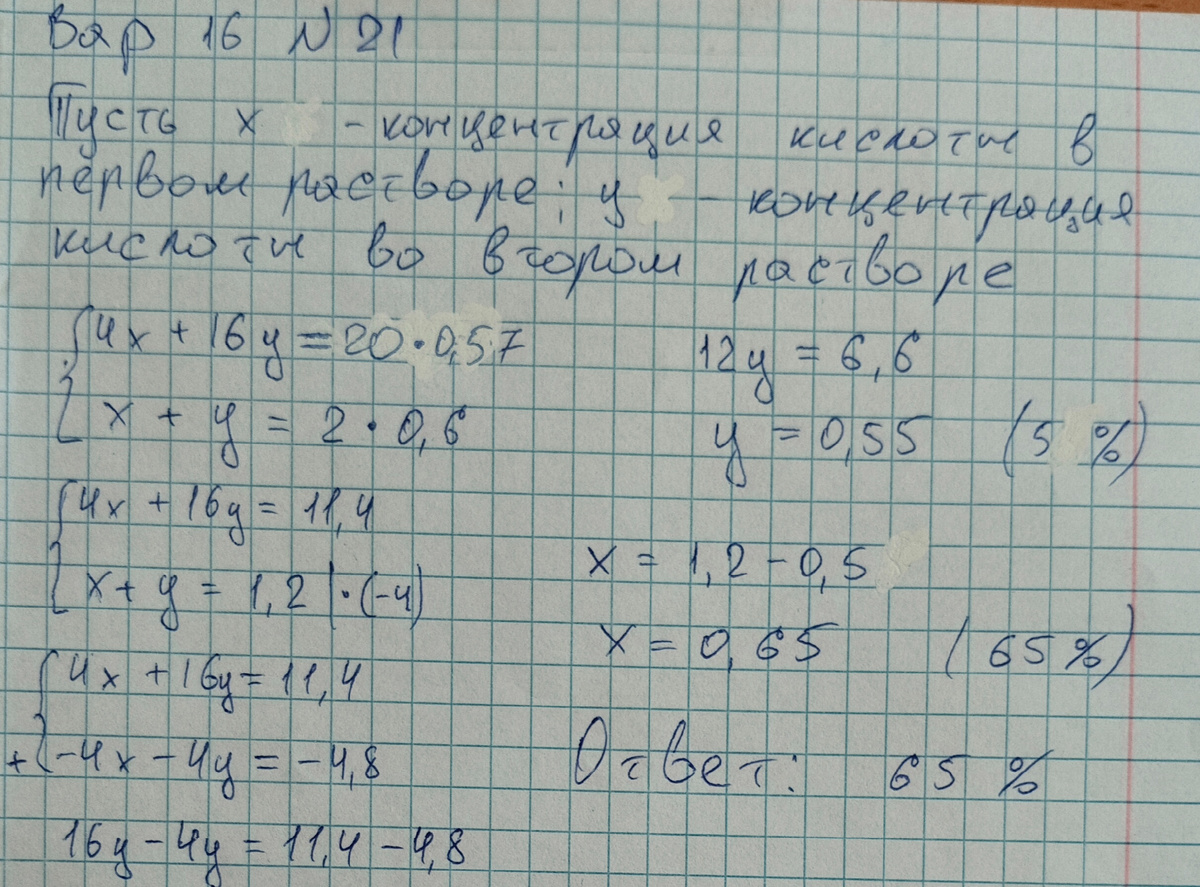 Вар 16 N 21
Пусть x - концентрация кислоты в
первом растворе; y - концентрация
кислоты во втором растворе
4x + 16y = 20 · 0,57
x + y = 2 · 0,6
4x + 16y = 11,4
x + y = 1,2 | · (-4)
4x + 16y = 11,4
+ -4x - 4y = -4,8
16y - 4y = 11,4 - 4,8
12y = 6,6
y = 0,55 (5 %)
x = 1,2 - 0,5
x = 0,65 (65 %)
Ответ: 65 %